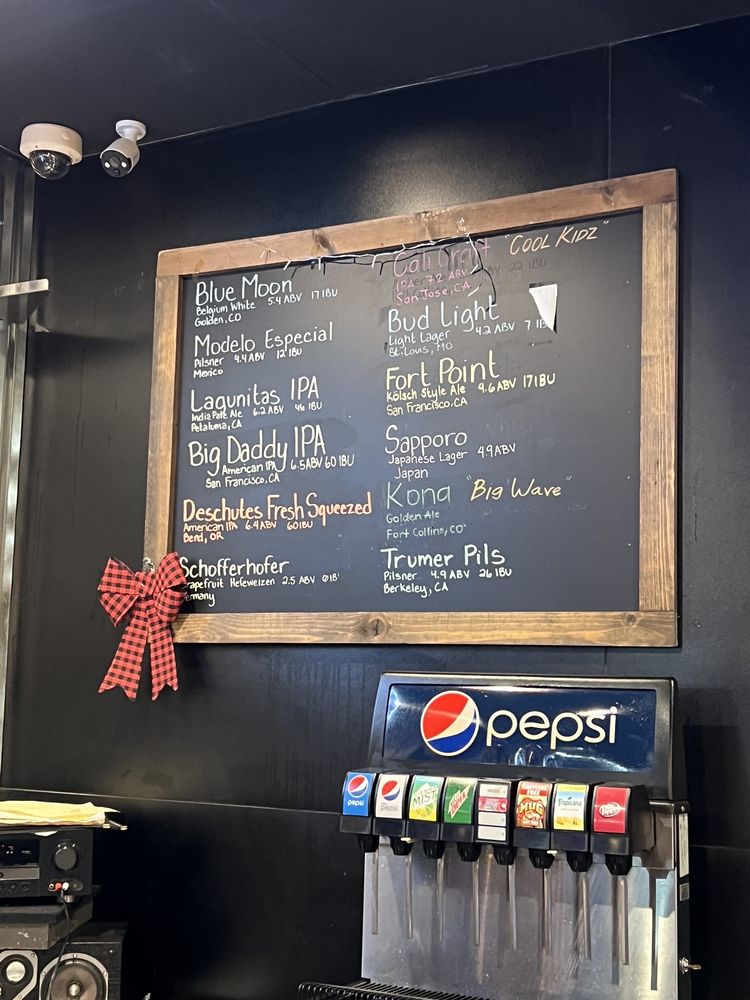 Blue Moon
Belgium White 5.4 ABV 17 IBU
Golden, CO
Modelo Especial
Pilsner 4.4 ABV 12 IBU
Mexico
Lagunitas IPA
India Pale Ale 6.2 ABV 46 IBU
Petaluma, CA
Big Daddy IPA
American IPA 6.5 ABV 60 IBU
San Francisco, CA
Deschutes Fresh Squeezed
American IPA 6.4 ABV 60 IBU
Bend, OR
Schofferhofer
Grapefruit Hefeweizen 2.5 ABV
Germany
Cali Craft "COOL KIDZ"
IPA 7.2 ABV 22 IBU
San Jose, CA
Bud Light
Light Lager 4.2 ABV 7 IB
St. Louis, MO
Fort Point
Kölsch Style Ale 4.6 ABV 17 IBU
San Francisco, CA
Sapporo
Japanese Lager 4.9 ABV
Japan
Kona "Big Wave"
Golden Ale
Fort Collins, CO
Trumer Pils
Pilsner 4.9 ABV 26 IBU
Berkeley, CA
pepsi
pepsi
pepsi
MIST
CAFFEINE FREE
MUG
Tropicana